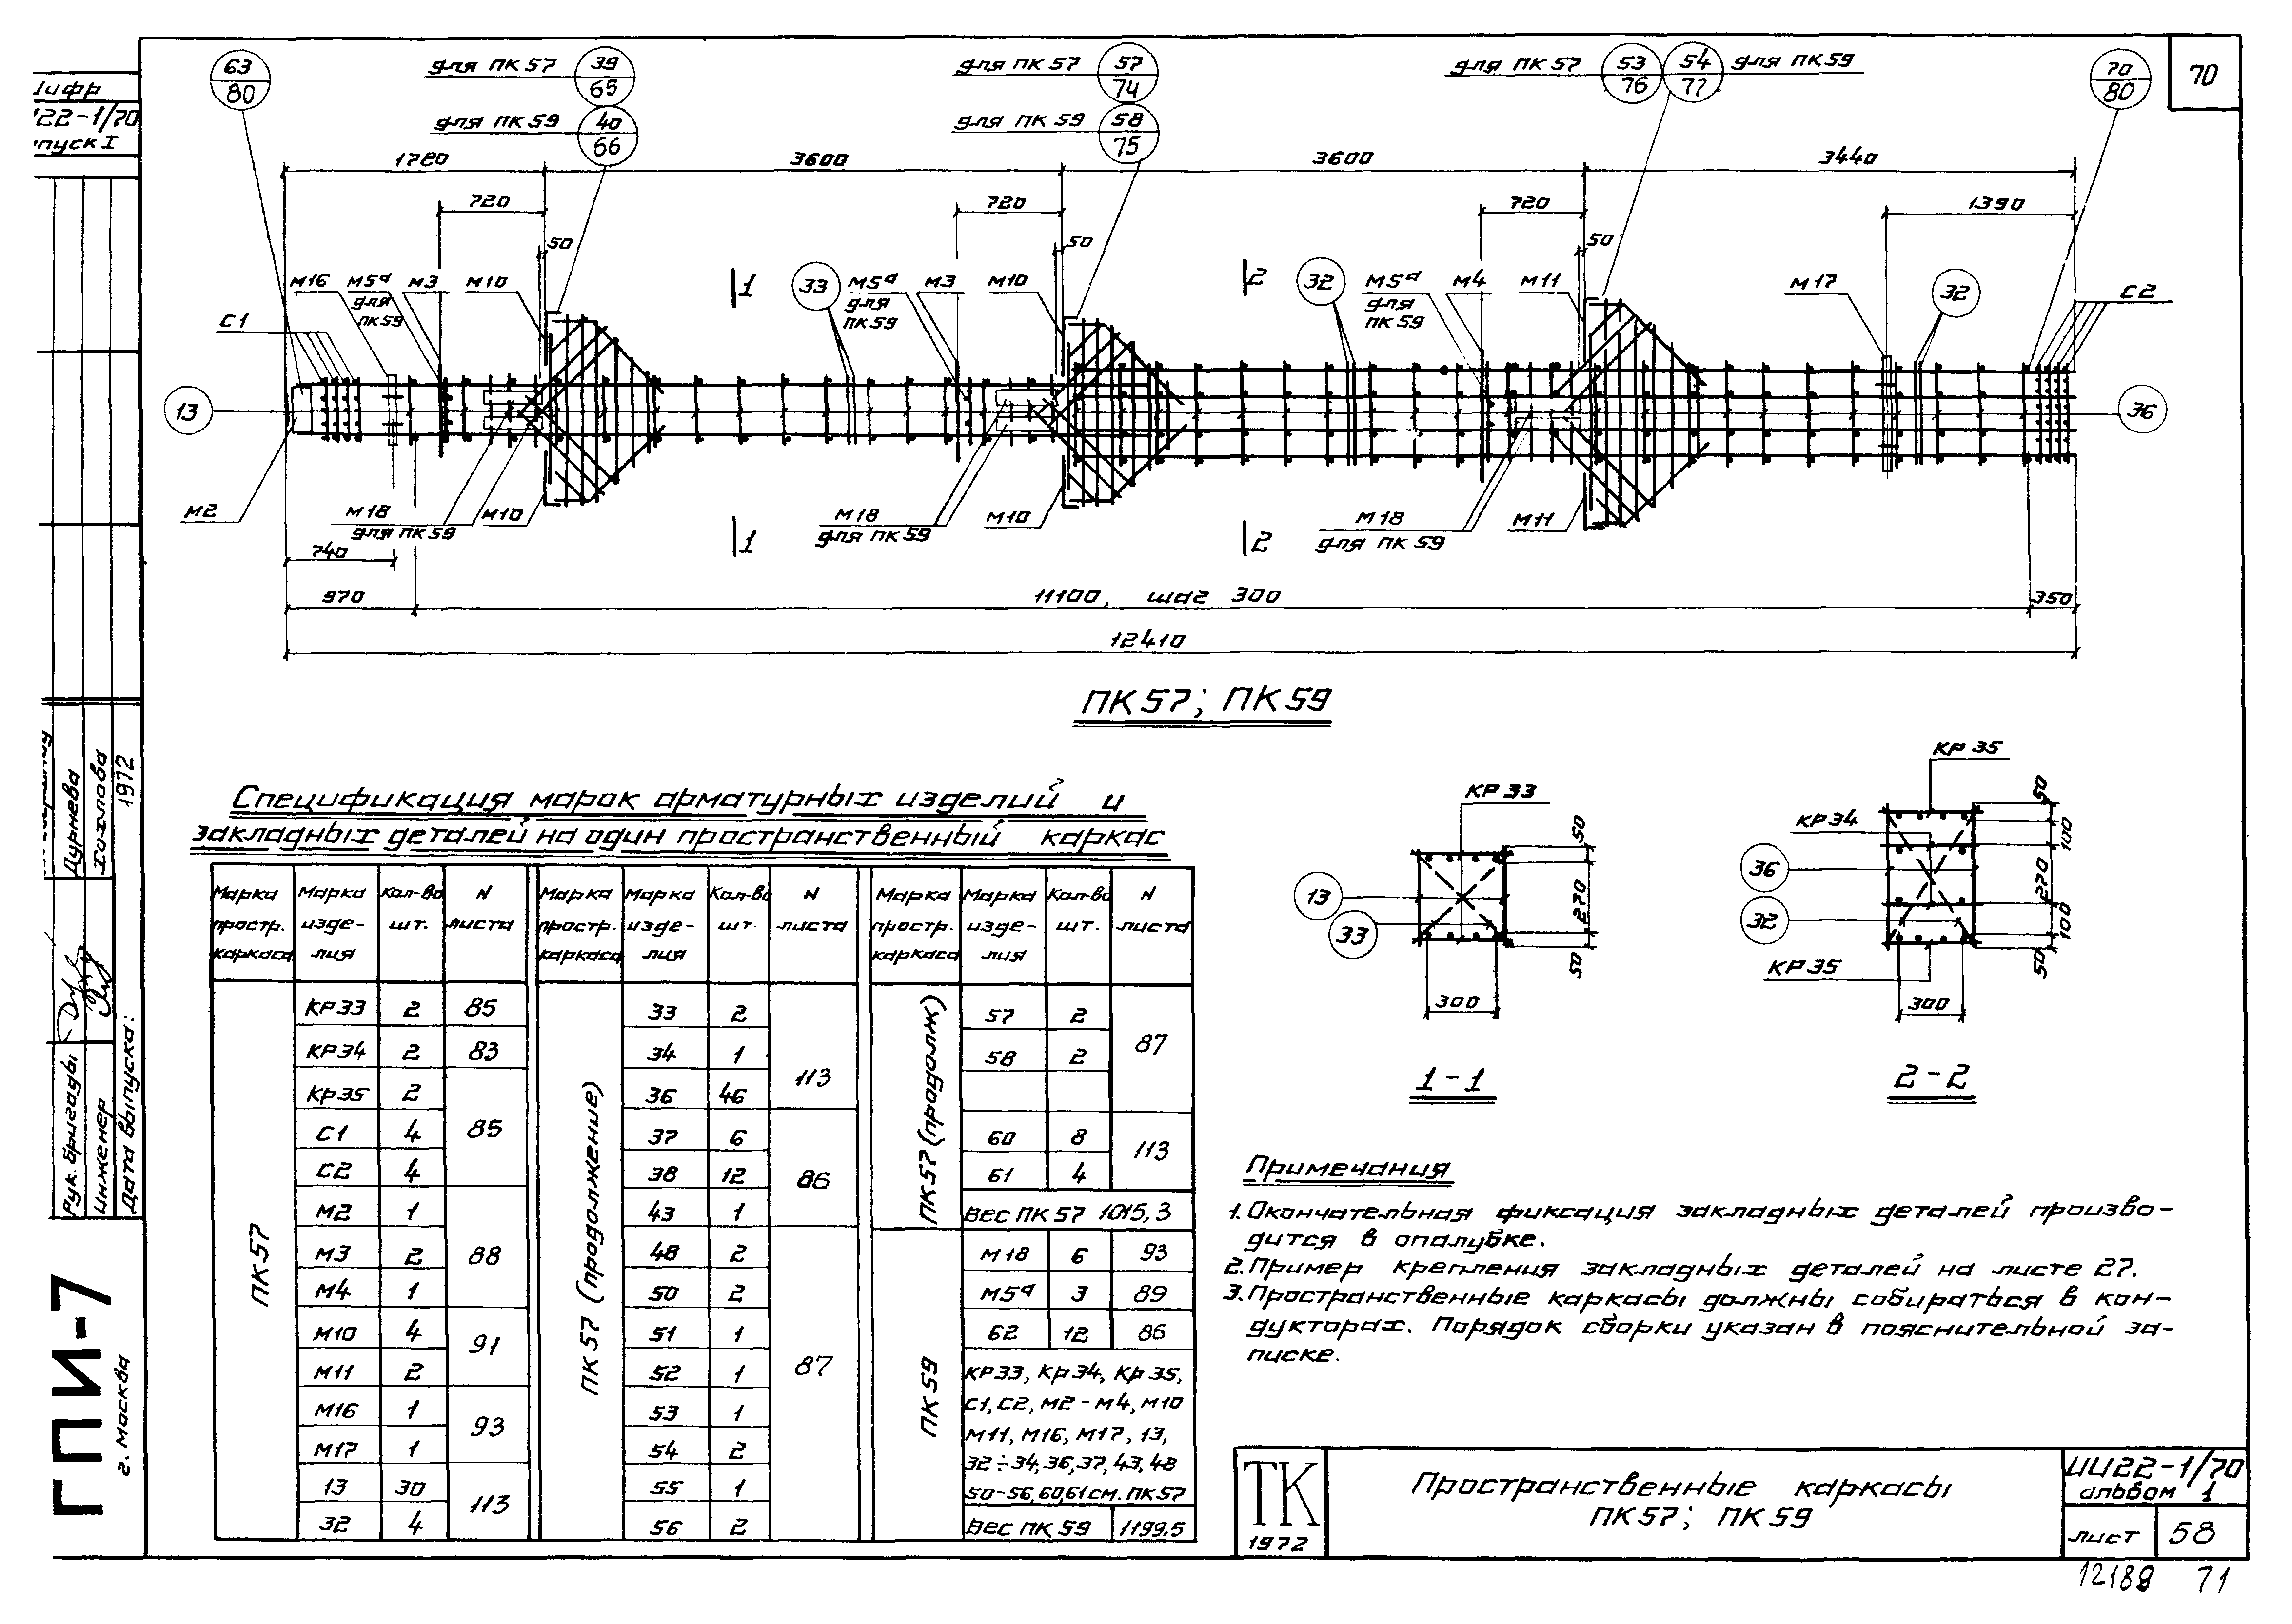 70
Шифр
ИИ22-1/70
63
80
для ПК 57 39
65
для ПК 59 40
66
для ПК 57 57
74
для ПК 59 58
75
для ПК 57 53 54 для ПК 59
76 77
70
80
1780 3600 3600 3440
720 720 720 1390
50 50 50
М16 М5а М3 М10
для
ПК 59
С1
1
33
М5а М3 М10
для
ПК 59
2
32
М5а М4 М11
для
ПК 59
М17 32 С2
13 36
М2
М18 М10
для ПК 59
М18 М10
для ПК 59
М18 М11
для ПК 59
1 2
740
970 11100, шаг 300 350
12410
ПК 57; ПК 59
Спецификация марок арматурных изделий и
закладных деталей на один пространственный каркас
Марка Марка Кол-во N Марка Марка Кол-во N Марка Марка Кол-во N
простр. изде- шт. листа простр. изде- шт. листа простр. изде- шт. листа
каркаса лия каркаса лия каркаса лия
ПК 57
КР33 2 85
КР34 2 83
КР35 2
С1 4 85
С2 4
М2 1
М3 2 88
М4 1
М10 4 91
М11 2
М16 1 93
М17 1
13 30 113
32 4
ПК 57 (продолжение)
33 2
34 1 113
36 46
37 6
38 12 86
43 1
48 2
50 2
51 1
52 1 87
53 1
54 2
55 1
56 2
ПК 57 (продолж)
57 2 87
58 2
60 8 113
61 4
Вес ПК 57 1015,3
ПК 59
М18 6 93
М5а 3 89
62 12 86
КР33, КР34, КР35,
С1, С2, М2-М4, М10
М11, М16, М17, 13,
32÷34, 36, 37, 43, 48
50-56, 60, 61 см. ПК 57
Вес ПК 59 1199.5
КР 33
13
33
50
270
50
300
1-1
КР 35
КР 34
36
32
КР 35
50
100
270
100
50
300
2-2
Примечания
1. Окончательная фиксация закладных деталей произво-
дится в опалубке.
2. Пример крепления закладных деталей на листе 27.
3. Пространственные каркасы должны собираться в кон-
дукторах. Порядок сборки указан в пояснительной за-
писке.
ТК
1972
Пространственные каркасы
ПК 57; ПК 59
ИИ22-1/70
альбом 1
лист 58
12189 71
Дурнева
Хохлова
1972
Рук. бригады
Инженер
Дата выпуска:
ГПИ-7
г. Москва